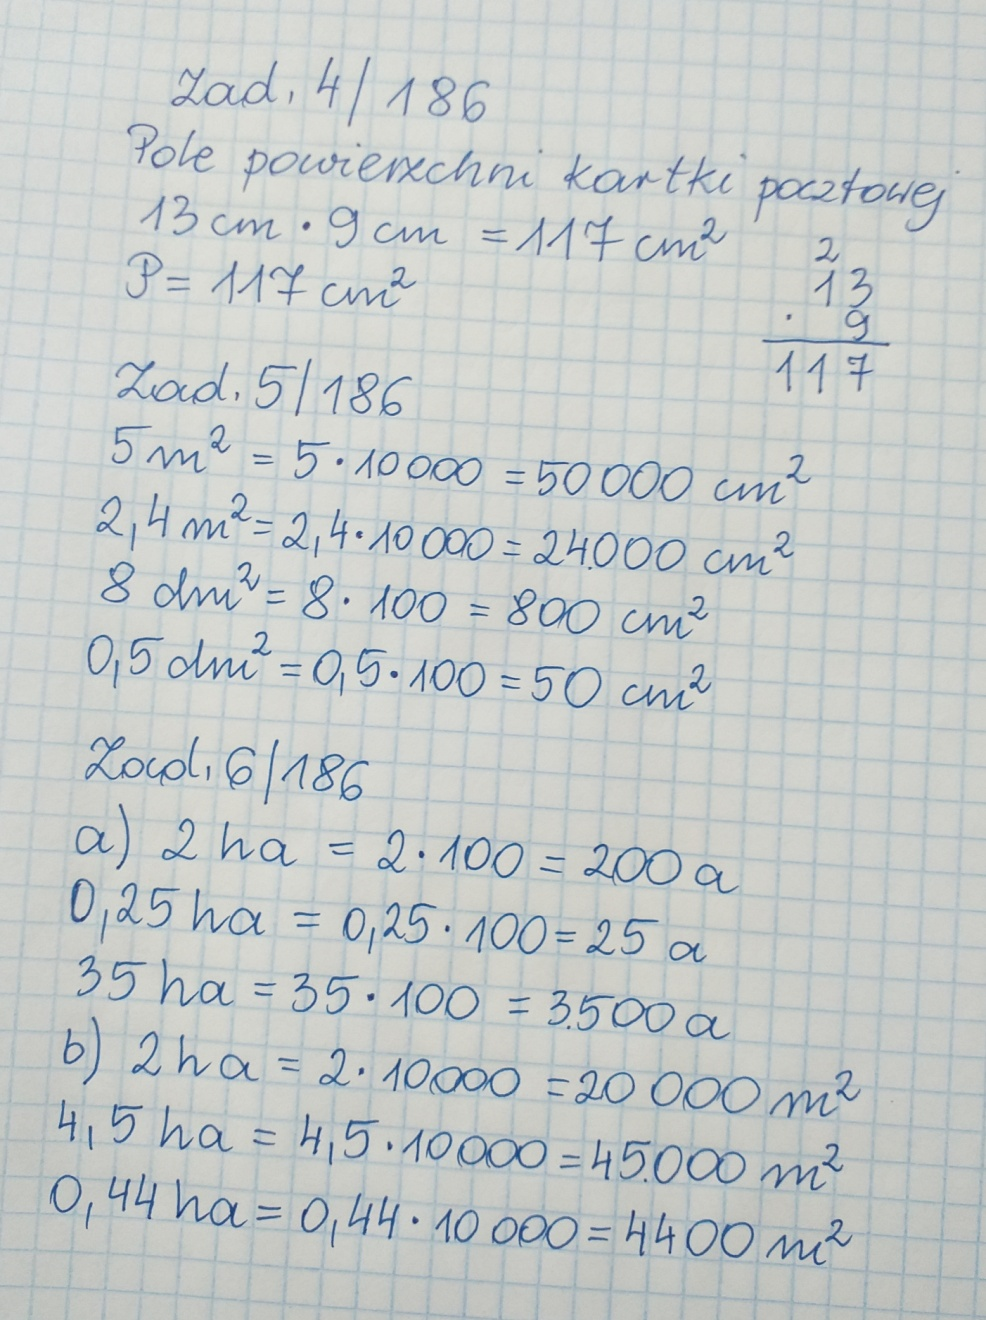 Zad. 4/186
Pole powierzchni kartki pocztowej
13 cm · 9 cm = 117 cm²
P = 117 cm²
2
13
· 9
117
Zad. 5/186
5 m² = 5 · 10 000 = 50 000 cm²
2,4 m² = 2,4 · 10 000 = 24.000 cm²
8 dm² = 8 · 100 = 800 cm²
0,5 dm² = 0,5 · 100 = 50 cm²
Zad. 6/186
a) 2 ha = 2 · 100 = 200 a
0,25 ha = 0,25 · 100 = 25 a
35 ha = 35 · 100 = 3.500 a
b) 2 ha = 2 · 10000 = 20 000 m²
4,5 ha = 4,5 · 10 000 = 45.000 m²
0,44 ha = 0,44 · 10 000 = 4400 m²